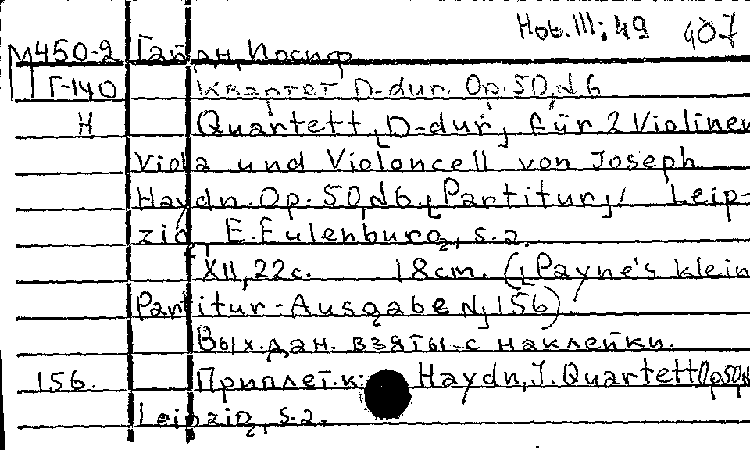 Hob. III: 49 407
М450-2 Гайдн, Иосиф
Г-140 Квартет D-dur. Op. 50, N6
Н Quartett, [D-dur], für 2 Violinen
Viola und Violoncell von Joseph
Haydn. Op. 50, N6, [Partitur,] Leip-
zig, E. Eulenburg, s.a.
XII, 22c. 18cm. ([Payne's klein
Partitur-Ausgabe N] 156).
Вых. дан. взяты с наклейки.
156. Приплет. к: Haydn, J. Quartett Op 50 N
Leipzig, s.a.